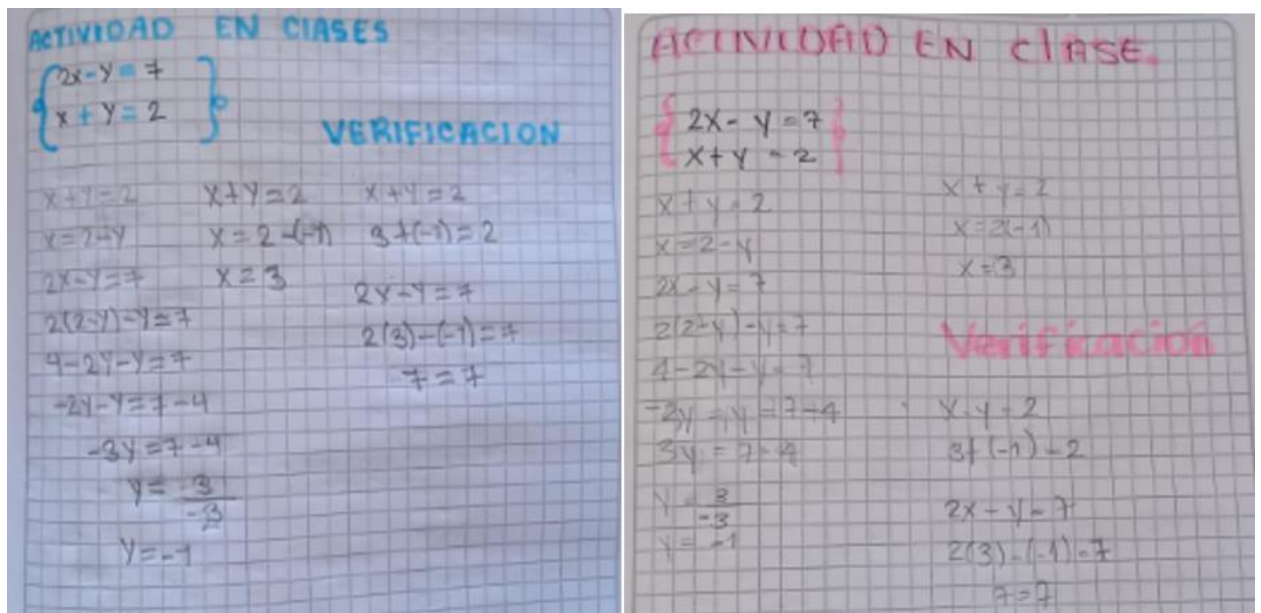 ACTIVIDAD EN CIASES
2x-y=7
x+y=2
VERIFICACION
x+y=2
x=2-y
2x-y=7
2(2-y)-y=7
4-2y-y=7
-2y-y=7-4
-3y=7-4
y=3/-3
y=-1
x+y=2
x=2-(-1)
x=3
x+y=2
3+(-1)=2
2x-y=7
2(3)-(-1)=7
7=7
ACTIVIDAD EN CLASE.
2x-y=7
x+y=2
x+y=2
x=2-y
2x-y=7
2(2-y)-y=7
4-2y-y=7
3y=7-4
y=3/-3
y=-1
x+y=2
x=2(-1)
x=3
Verificación
3+(-1)=2
2x-y=7
2(3)-(-1)=7
7=7